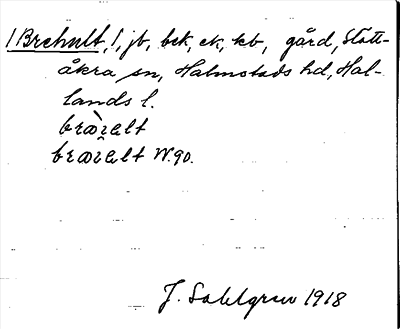 /Brehult,/, jb, bek, ek, kb, gård, Slätt-
åkra sn, Halmstads hd, Hal-
lands l.
W.90.
J. Sahlgren 1918